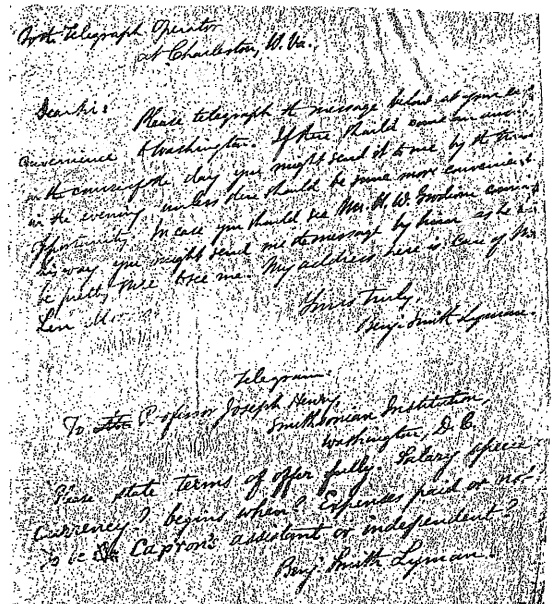 Telegraph Operator
at Charleston, W. Va.,
Dear Sir:
Please telegraph the message below at your
convenience to Washington. If there should come an
in the course of the day you might send it to me by the
in the evening, unless there should be some more convenient
opportunity. In case you should see Mr. H. W. coming
this way you might send me the message by him as he is
be pretty sure to see me. My address here is, care of Mr.
Levi
Yours truly,
Benj. Smith Lyman.
Telegram.
To Professor Joseph Henry,
Smithsonian Institution,
Washington, D. C.
Please state terms of offer fully. Salary specie
currency? begins when? Expenses paid or not?
Capron's assistant or independent?
Benj. Smith Lyman.